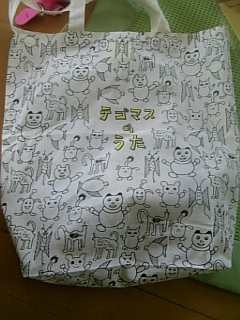 テゴマス
の
うた